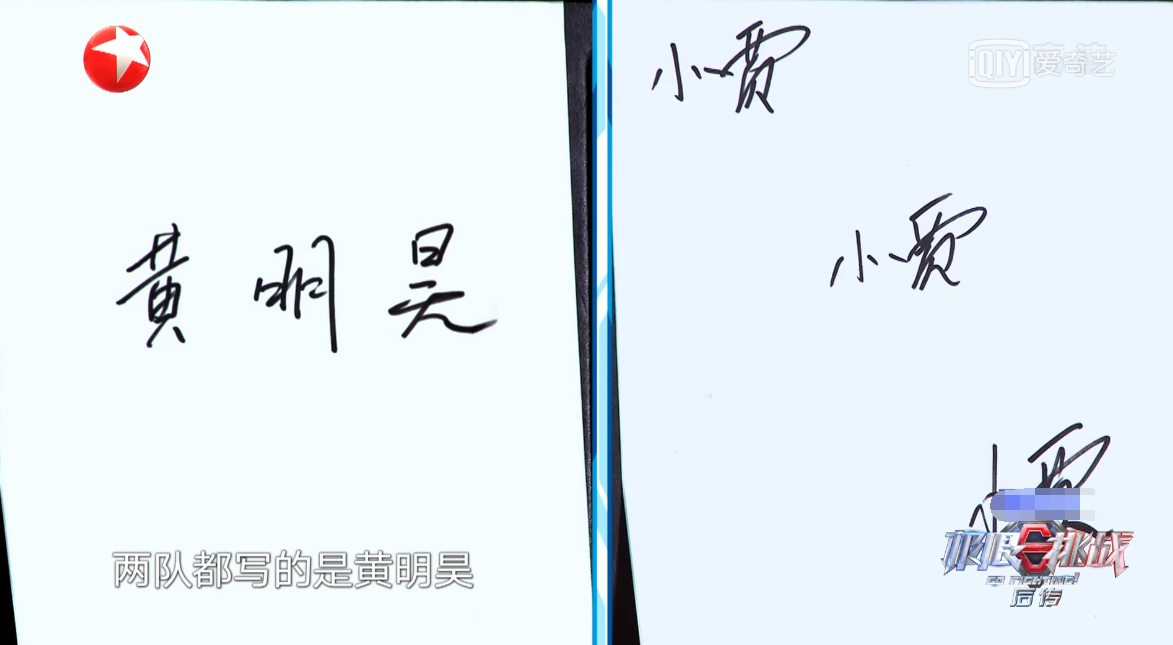 黄明昊
小贾
小贾
小贾
两队都写的是黄明昊
iQIYI 爱奇艺
极限挑战
后传